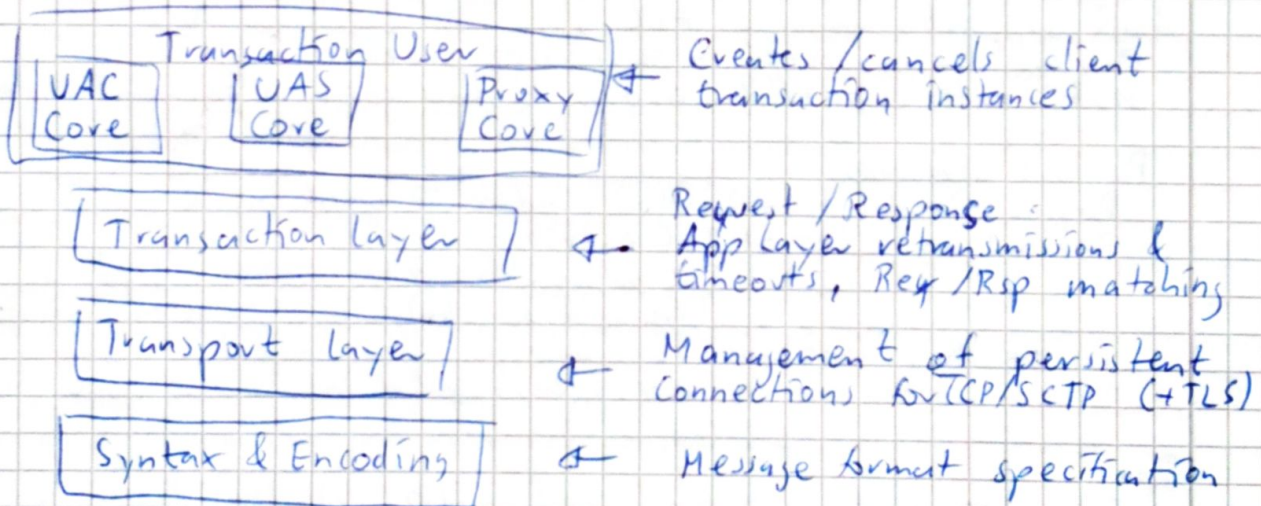 Transaction User
UAC
Core
UAS
Core
Proxy
Core
Creates / cancels client
transaction instances
Transaction layer
Request / Response :
App layer retransmissions &
timeouts, Req / Rsp matching
Transport layer
Management of persistent
connections for TCP/SCTP (+TLS)
Syntax & Encoding
Message format specification